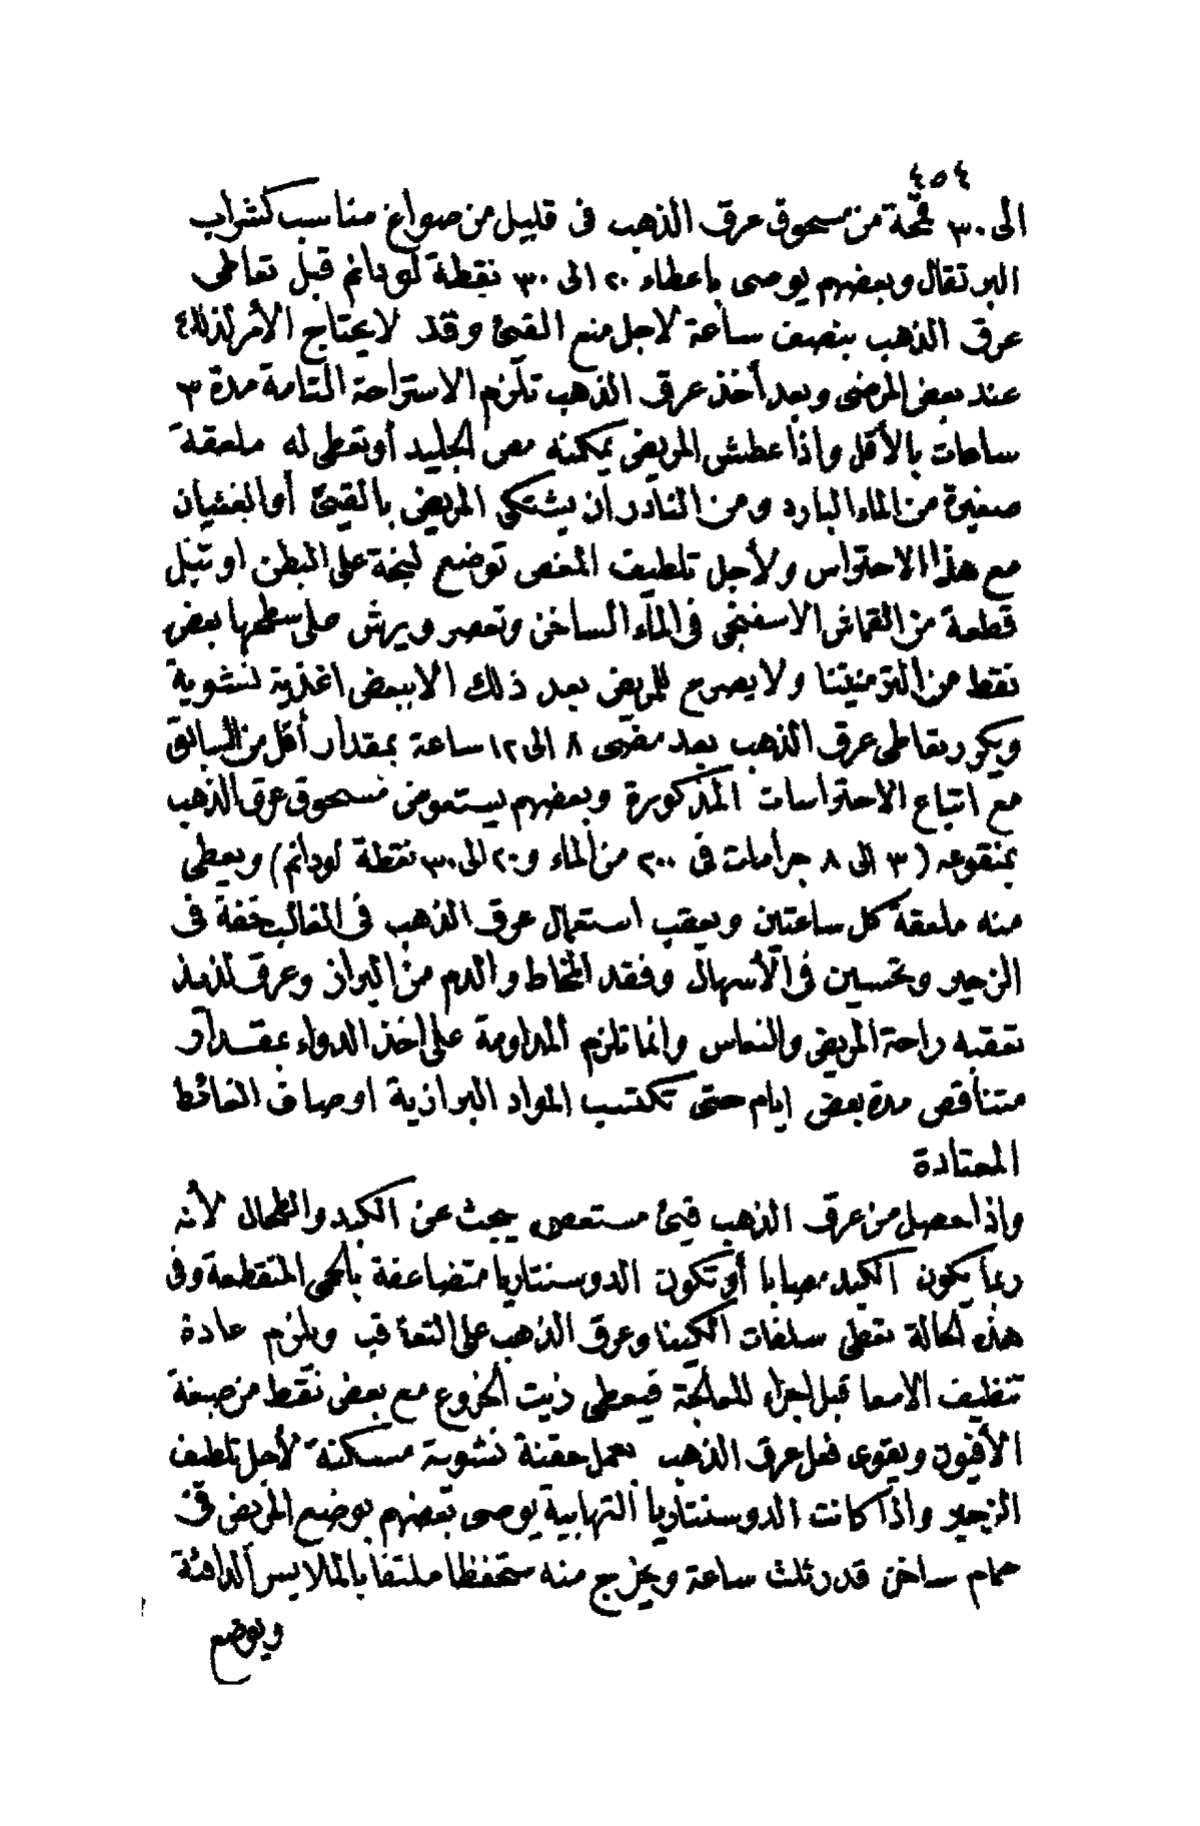 ٤٥٤
الى ٣٠ قمحة من مسحوق عرق الذهب فى قليل من صواغ مناسب كشراب
البرتقال وبعضهم يوصى باعطاء ٢٠ الى ٣٠ نقطة لودانم قبل تعاطى
عرق الذهب بنصف ساعة لاجل منع القئ وقد لا يحتاج الأمر لذلك
عند بعض المرضى وبعد أخذ عرق الذهب تلزم الاستراحة التامة مدة ٣
ساعات بالأقل واذا عطش المريض يمكنه مص الجليد أو تعطى له ملعقة
صغيرة من الماء البارد ومن النادر ان يشتكى المريض بالقئ أو الغثيان
مع هذا الاحتراس ولأجل تلطيف المغص توضع لبخة على البطن او تبل
قطعة من القماش الاسفنجى فى الماء الساخن وتعصر ويرش على سطحها بعض
نقط من الترمنتينا ولا يصرح للمريض بعد ذلك الا ببعض اغذية نشوية
ويكرر تعاطى عرق الذهب بعد مضى ٨ الى ١٢ ساعة بمقدار أقل من السابق
مع اتباع الاحتراسات المذكورة وبعضهم يستعوض مسحوق عرق الذهب
بمنقوعه (٣ الى ٨ جرامات فى ٢٠٠ من الماء و٢٠ الى ٣٠ نقطة لودانم) ويعطى
منه ملعقة كل ساعتين ويعقب استعمال عرق الذهب فى الغالب خفة فى
الزحير وتحسين فى الأسهال وفقد المخاط والدم من البراز وعرق لذيذ
تعقبه راحة المريض والنعاس وانما تلزم المداومة على اخذ الدواء بمقدار
متناقص مدة بعض ايام حتى تكتسب المواد البرازية اوصاف الغائط
المعتادة
واذا حصل من عرق الذهب قئ مستعصى يبحث عن الكبد والطحال لأنه
ربما يكون الكبد مصابا أو تكون الدوسنتاريا متضاعفة بالحمى المتقطعة وفى
هذه الحالة تعطى سلفات الكينا وعرق الذهب على التعاقب ويلزم عادة
تنظيف الامعا قبل اجراء المعالجة فيعطى زيت الخروع مع بعض نقط من صبغة
الأفيون ويقوى فعل عرق الذهب بعمل حقنة نشوية مسكنة لأجل تلطيف
الزحير واذا كانت الدوسنتاريا التهابية يوصى بعضهم بوضع المريض فى
حمام ساخن قدر ثلث ساعة ويخرج منه متحفظا ملتفا بالملابس الدافئة
ويوضع